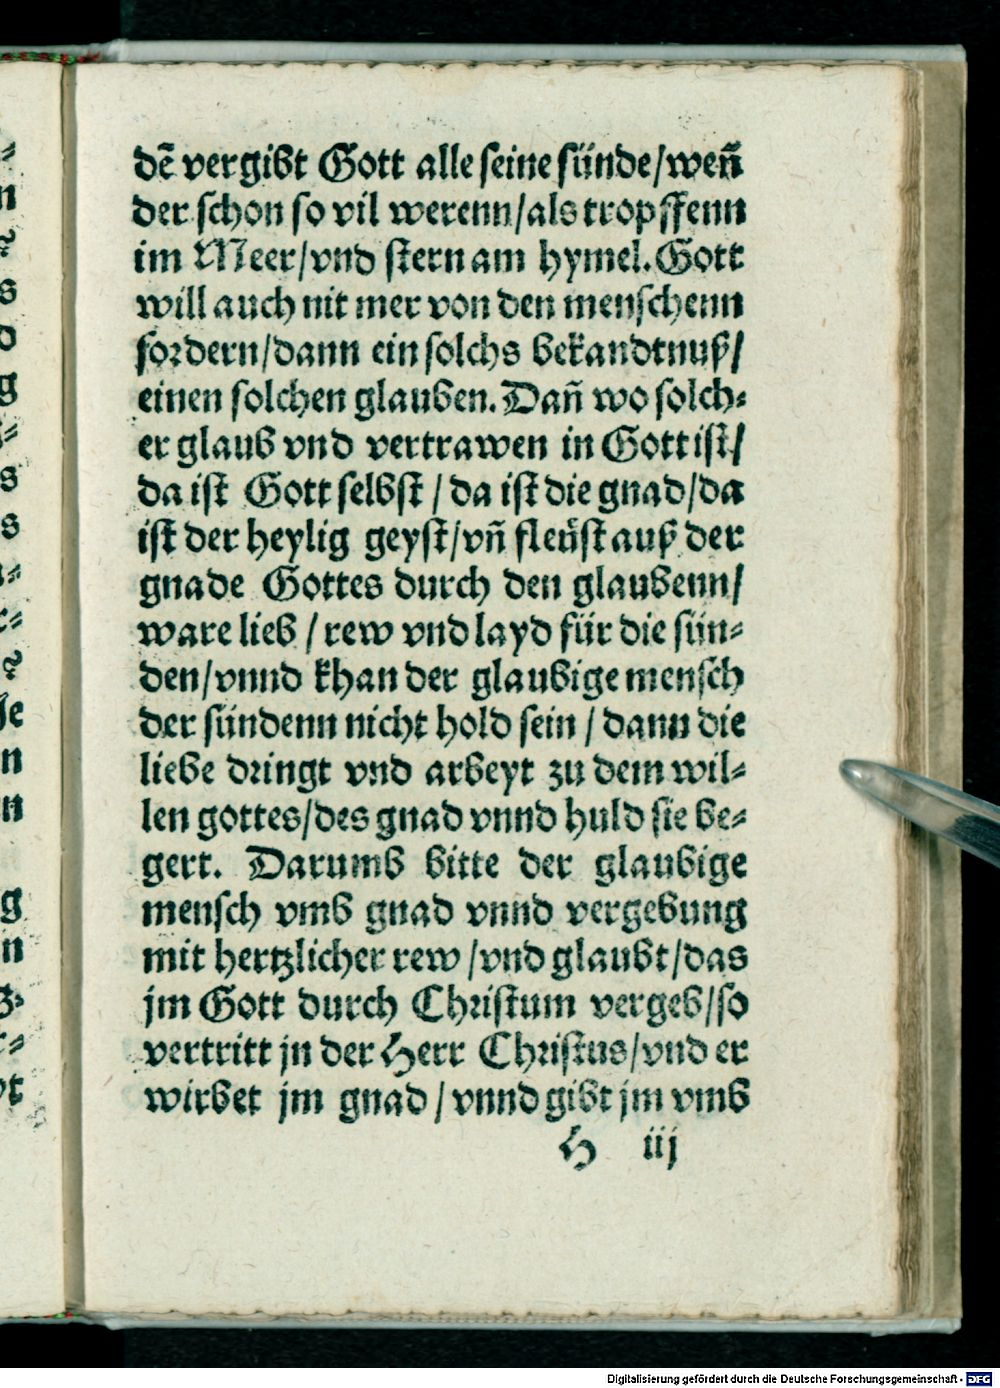 dē vergibt Gott alle seine sünde/weñ
der schon so vil werenn/als tropffenn
im Meer/vnd stern am hymel. Gott
will auch nit mer von den menschenn
fordern/dann ein solchs bekandtnuß/
einen solchen glauben. Dañ wo solch⸗
er glaub vnd vertrawen in Gott ist/
da ist Gott selbst / da ist die gnad/da
ist der heylig geyst/vñ fleüst auß der
gnade Gottes durch den glaubenn/
ware lieb / rew vnd layd für die sün⸗
den/vnnd khan der glaubige mensch
der sündenn nicht hold sein / dann die
liebe dringt vnd arbeyt zu dem wil⸗
len gottes/des gnad vnnd huld sie be⸗
gert. Darumb bitte der glaubige
mensch vmb gnad vnnd vergebung
mit hertzlicher rew /vnd glaubt/das
jm Gott durch Christum vergeb/so
vertritt jn der Herr Christus/vnd er
wirbet jm gnad / vnnd gibt jm vmb
H iij
Digitalisierung gefördert durch die Deutsche Forschungsgemeinschaft - DFG